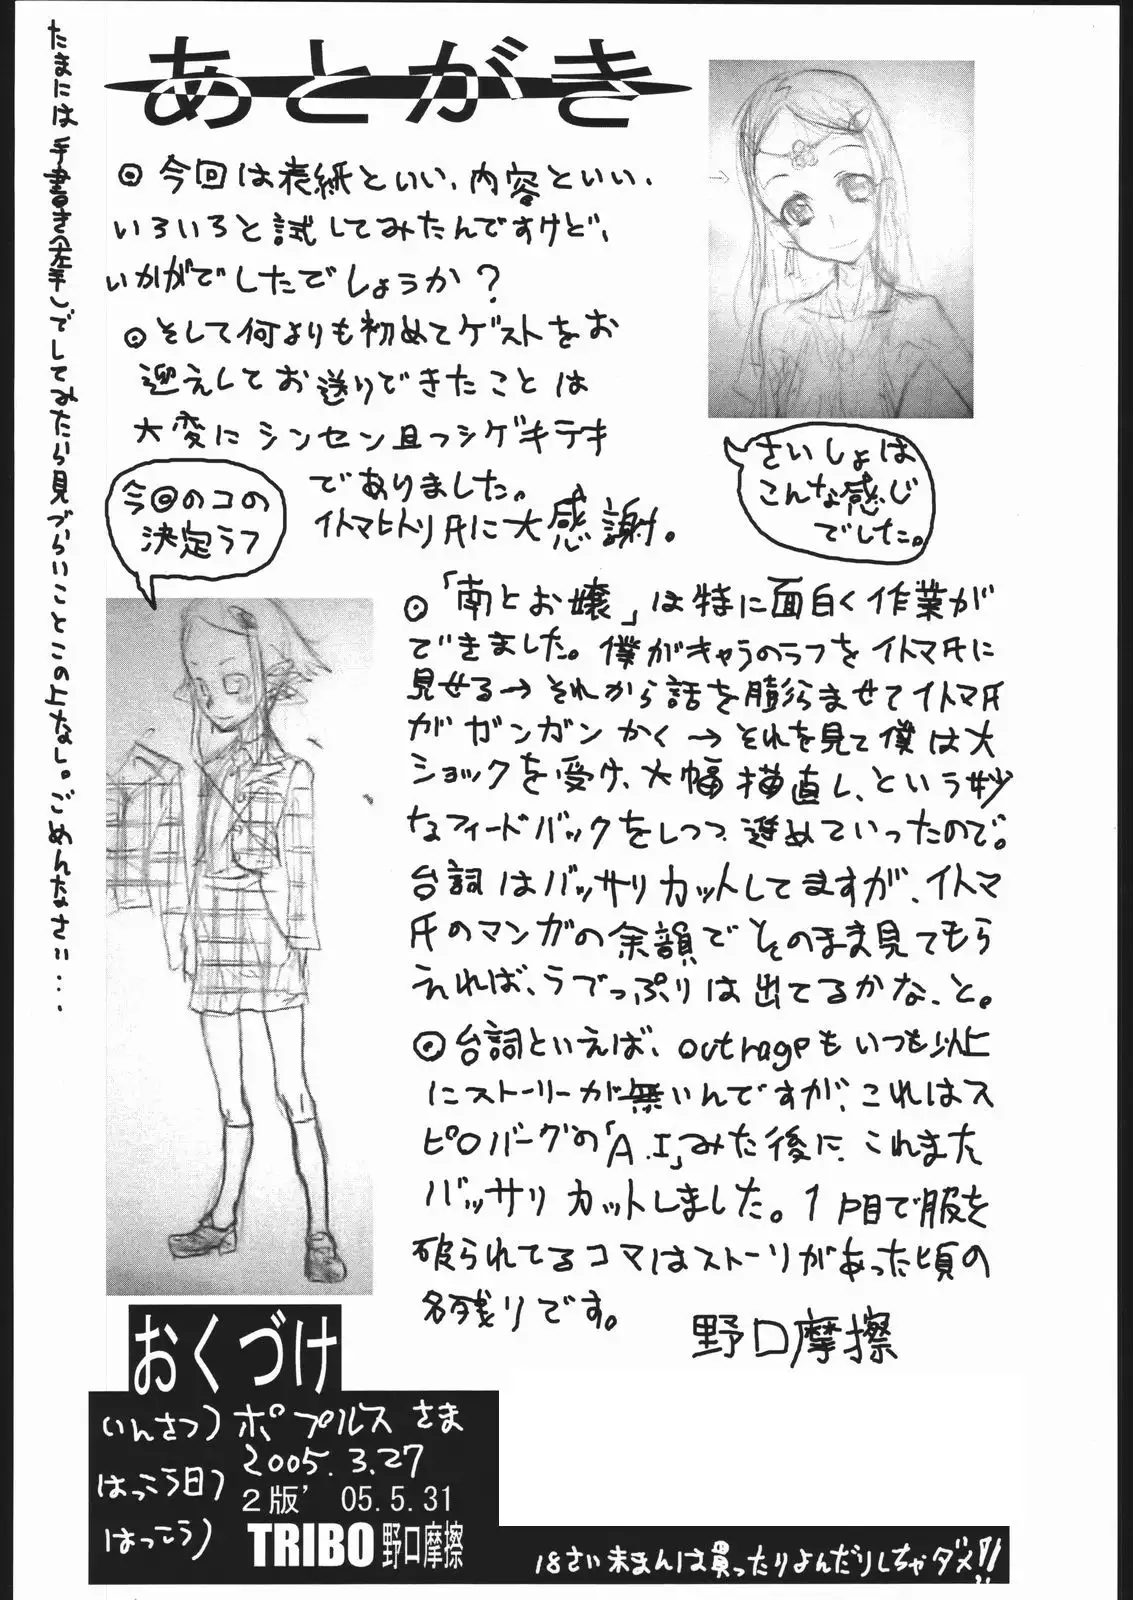 たまには手書き(左手)でしてみたら見づらいことこの上なし。ごめんなさい...
あとがき
◎今回は表紙といい、内容といい、
いろいろと試してみたんですけど、
いかがでしたでしょうか？
◎そして何よりも初めてゲストをお
迎えしてお送りできたことは
大変にシンセン且つシゲキテキ
でありました。
イトマヒトリ氏に大感謝。
さいしょは
こんな感じ
でした。
今回のコの
決定ラフ
◎「南とお嬢」は特に面白く作業が
できました。僕がキャラのラフをイトマ氏に
見せる→それから話を膨らませてイトマ氏
がガンガンかく→それを見て僕は大
ショックを受け、大幅描直し、という妙
なフィードバックをしつつ進めていったので。
台詞はバッサリカットしてますが、イトマ
氏のマンガの余韻でそのまま見てもら
えれば、うでっぷりは出てるかな、と。
◎台詞といえば、outrageもいつも以上
にストーリーが無いんですが、これはス
ピルバーグの「A.I」みた後に、これまた
バッサリカットしました。1P目で服を
破られてるコマはストーリがあった頃の
名残りです。
野口摩擦
おくづけ
いんさつ)ポプルスさま
はっこう日)2005.3.27
2版' 05.5.31
はっこう)TRIBO野口摩擦
18さい未まんは買ったりよんだりしちゃダメ!!